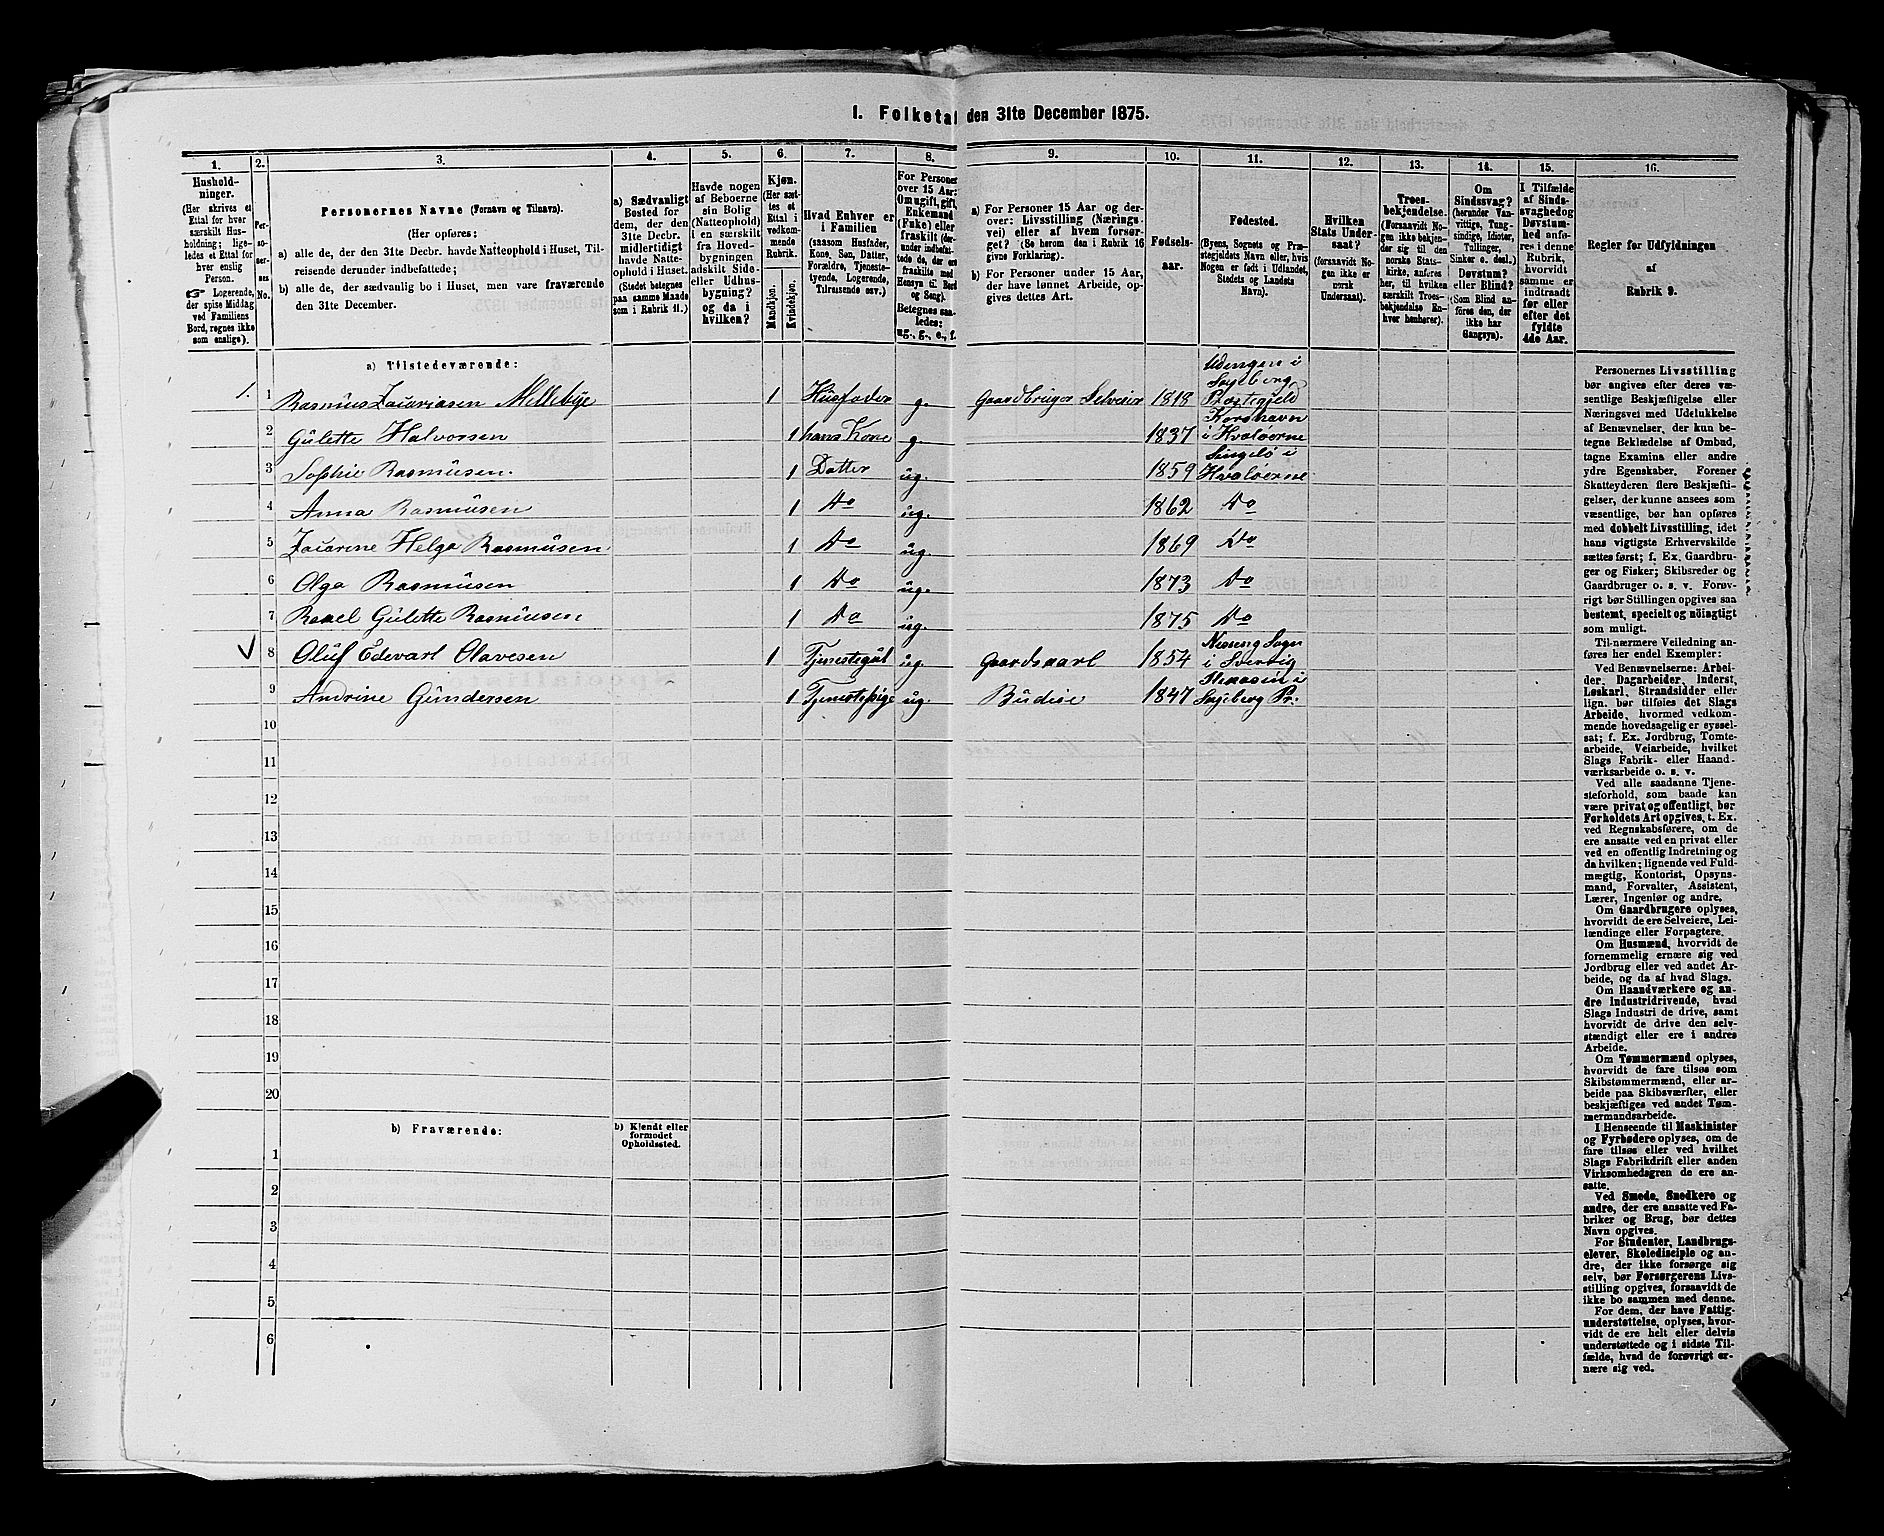 1. Folketal den 31te December 1875.
1. 2. 3. 4. 5. 6. 7. 8. 9. 10. 11. 12. 13. 14. 15. 16.
Hushold-
ninger.
(Her skrives et
Ettal for hver
særskilt Hus-
holdning; lige-
ledes et Ettal for
hver enslig
Person.
Logerende,
der spise Middag
ved Familiens
Bord, regnes ikke
som enslige).
Personernes Navne (Fornavn og Tilnavn).
(Her opføres:
a) alle de, der den 31te Decbr. havde Natteophold i Huset, Til-
reisende derunder indbefattede;
b) alle de, der sædvanlig bo i Huset, men vare fraværende
den 31te December.
a) Sædvanligt
Bosted for
dem, der den
31te Decbr.
midlertidigt
havde Natte-
ophold i Huset.
(Stedet betegnes
paa samme Maade
som i Rubrik 11.)
Havde nogen
af Beboerne
sin Bolig
(Natteophold)
i en særskilt
fra Hoved-
bygningen
adskilt Side-
eller Udhus-
bygning?
og da i
hvilken?
Kjøn.
(Her sæt-
tes et
Ettal i
vedkom-
mende
Rubrik.
Mandkjøn.
Kvindekjøn.
Hvad Enhver er
i Familien
(saasom Husfader,
Kone, Søn, Datter,
Forældre, Tjeneste-
tyende, Logerende,
Tilreisende osv.)
For Personer
over 15 Aar:
Om ugift, gift,
Enkemand
(Enke) eller
fraskilt
Betegnes saa-
ledes:
ug., g., e., f.
a) For Personer 15 Aar og der-
over: Livsstilling (Nærings-
vei) eller af hvem forsør-
get? (Se herom den i Rubrik 16
givne Forklaring).
b) For Personer under 15 Aar,
der have lønnet Arbeide, op-
gives dettes Art.
Fødsels-
aar.
Fødested.
(Byens, Sognets og Præ-
stegjeldets Navn eller, hvis
Nogen er født i Udlandet,
Stedets og Landets
Navn).
Hvilken
Stats Under-
saat?
(forsaavidt No-
gen ikke er
norsk
Undersaat).
Troes-
bekjendelse.
(Forsaavidt No-
gen ikke bekjen-
der sig til den
norske Stats-
kirke, anføres
her, til hvilken
særskilt Troes-
bekjendelse En-
hver henhører).
Om
Sindssvag?
(herunder Van-
vittige, Tung-
sindige, Idioter,
Tullinger,
Sinker o. desl.)
Døvstum?
eller Blind?
(Som Blind an-
føres den, der
ikke har
Gangsyn).
I Tilfælde
af Sinds-
svaghed og
Døvstum-
hed anfø-
res i denne
Rubrik,
hvorvidt
samme er
indtraadt
før eller
efter det
fyldte
4de Aar.
Regler for Udfyldningen
af
Rubrik 9.
a) Tilstedeværende:
1. 1 Rasmus Zacariasen Mellebye 1 Husfader g. Gaardbruger Selveier 1818 Udengen i Præstegjeld
2 Gulette Halvorsen 1 hans Kone g. 1837 Korshavn i Hvaløerne
3 Sophie Rasmusen. 1 Datter ug. 1859 Singelö i Hvaløerne
4 Anna Rasmusen 1 Do ug. 1862 Do
5 Zacarine Helga Rasmusen 1 Do ug. 1869 Do
6 Olga Rasmusen 1 Do ug. 1873 Do
7 Rakel Gulette Rasmusen 1 Do ug. 1875 Do
8 Oluf Edevart Olavesen 1 Tjenestegut ug. Gaardskarl 1854 Sogn i Sverrig
9 Andrine Gundersen 1 Tjenestepige ug. Budeie 1847 i Pr:
10
11
12
13
14
15
16
17
18
19
20
b) Fraværende:
b) Kjendt eller
formodet
Opholdssted.
1
2
3
4
5
6
Personernes Livsstilling
bør angives efter deres væ-
sentlige Beskjæftigelse eller
Næringsvei med Udelukkelse
af Benævnelser, der kun be-
tegne Beklædelse af Ombud,
tagne Examina eller andre
ydre Egenskaber. Forener
Skatteyderen flere Beskjæfti-
gelser, der kunne ansees som
væsentlige, bør han opføres
med dobbelt Livsstilling, idet
hans vigtigste Erhvervskilde
sættes først; f. Ex. Gaardbru-
ger og Fisker; Skibsreder og
Gaardbruger o. s. v. Forøv-
rigt bør Stillingen opgives saa
bestemt, specielt og nöiagtigt
som muligt.
Til nærmere Veiledning an-
føres her endel Exempler:
Ved Benævnelserne: Arbei-
der, Dagarbeider, Inderst,
Løskarl, Strandsidder eller
lign. bør tilføies det Slags
Arbeide, hvormed vedkom-
mende hovedsagelig er syssel-
sat; f. Ex. Jordbrug, Tomte-
arbeide, Veiarbeide, hvilket
Slags Fabrik- eller Haand-
værksarbeide o. s. v.
Ved alle saadanne Tjene-
steforhold, som baade kan
være privat og offentligt, bør
Forholdets Art opgives, t. Ex.
ved Regnskabsførere, om de
ere ansatte ved en privat eller
ved en offentlig Indretning og
da hvilken; lignende ved Fuld-
mægtig, Kontorist, Opsyns-
mand, Forvalter, Assistent,
Lærer, Ingeniør og andre.
Om Gaardbrugere oplyses,
hvorvidt de ere Selveiere, Lei-
lændinge eller Forpagtere.
Om Husmænd, hvorvidt de
fornemmelig ernære sig ved
Jordbrug eller ved andet Ar-
beide, og da af hvad Slags.
Om Haandværkere og an-
dre Industridrivende, hvad
Slags Industri de drive, samt
hvorvidt de drive den selv-
stændigt eller ere i andres
Arbeide.
Om Tømmermænd oplyses,
hvorvidt de fare tilsøs som
Skibstømmermænd, eller ar-
beide paa Skibsværfter, eller
beskjæftiges ved andet Tøm-
mermandsarbeide.
I Henseende til Maskinister
og Fyrbødere oplyses, om de
fare tilsøs eller ved hvilket
Slags Fabrikdrift eller anden
Virksomhedsgren de ere an-
satte.
Ved Smede, Snedkere og
andre, der ere ansatte ved Fa-
briker og Brug, bør dettes
Navn opgives.
For Studenter, Landbrugs-
elever, Skoledisciple og an-
dre, der ikke forsørge sig
selv, bør Forsørgerens Livs-
stilling opgives, forsaavidt de
ikke bo sammen med denne.
For dem, der have Fattig-
understøttelse, oplyses, hvor-
vidt de ere helt eller delvis
understøttede og i sidste Til-
fælde, hvad de forøvrigt er-
nære sig ved.